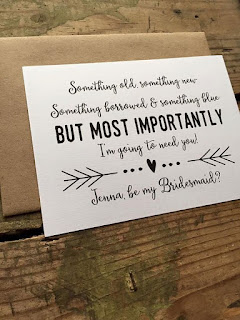 Something old, something new
Something borrowed & something blue
BUT MOST IMPORTANTLY
I'm going to need you!
Jenna, be my Bridesmaid?